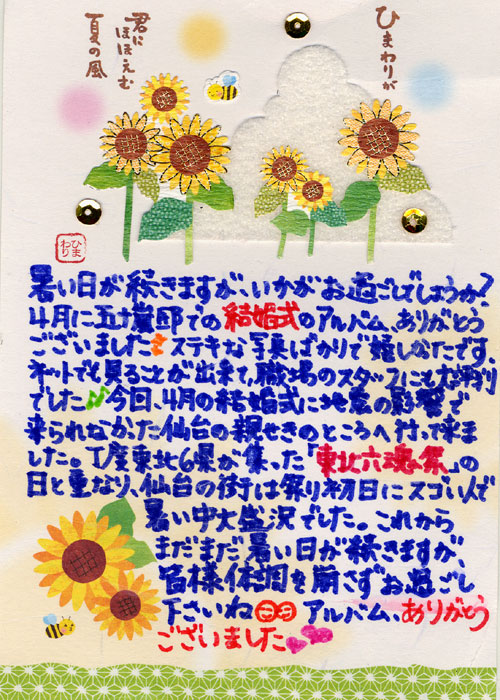 ひまわりが
君に
ほほえむ
夏の風
ひまわり
暑い日が続きますが、いかがお過ごしでしょうか?
4月に五十嵐邸での結婚式のアルバム、ありがとう
ございました ステキな写真ばかりで嬉しかったです。
ネットでも見ることが出来て、職場のスタッフにも大評判
でした 今回、4月の結婚式に地震の影響で
来られなかった仙台の親せきのところへ行って来ま
した。丁度東北6県が集った「東北六魂祭」の
日と重なり、仙台の街は祭り初日にスゴい人で
暑い中大盛況でした。これから
まだまだ暑い日が続きますが、
皆様体調を崩さずお過ごし
下さいね アルバム、ありがとう
ございました